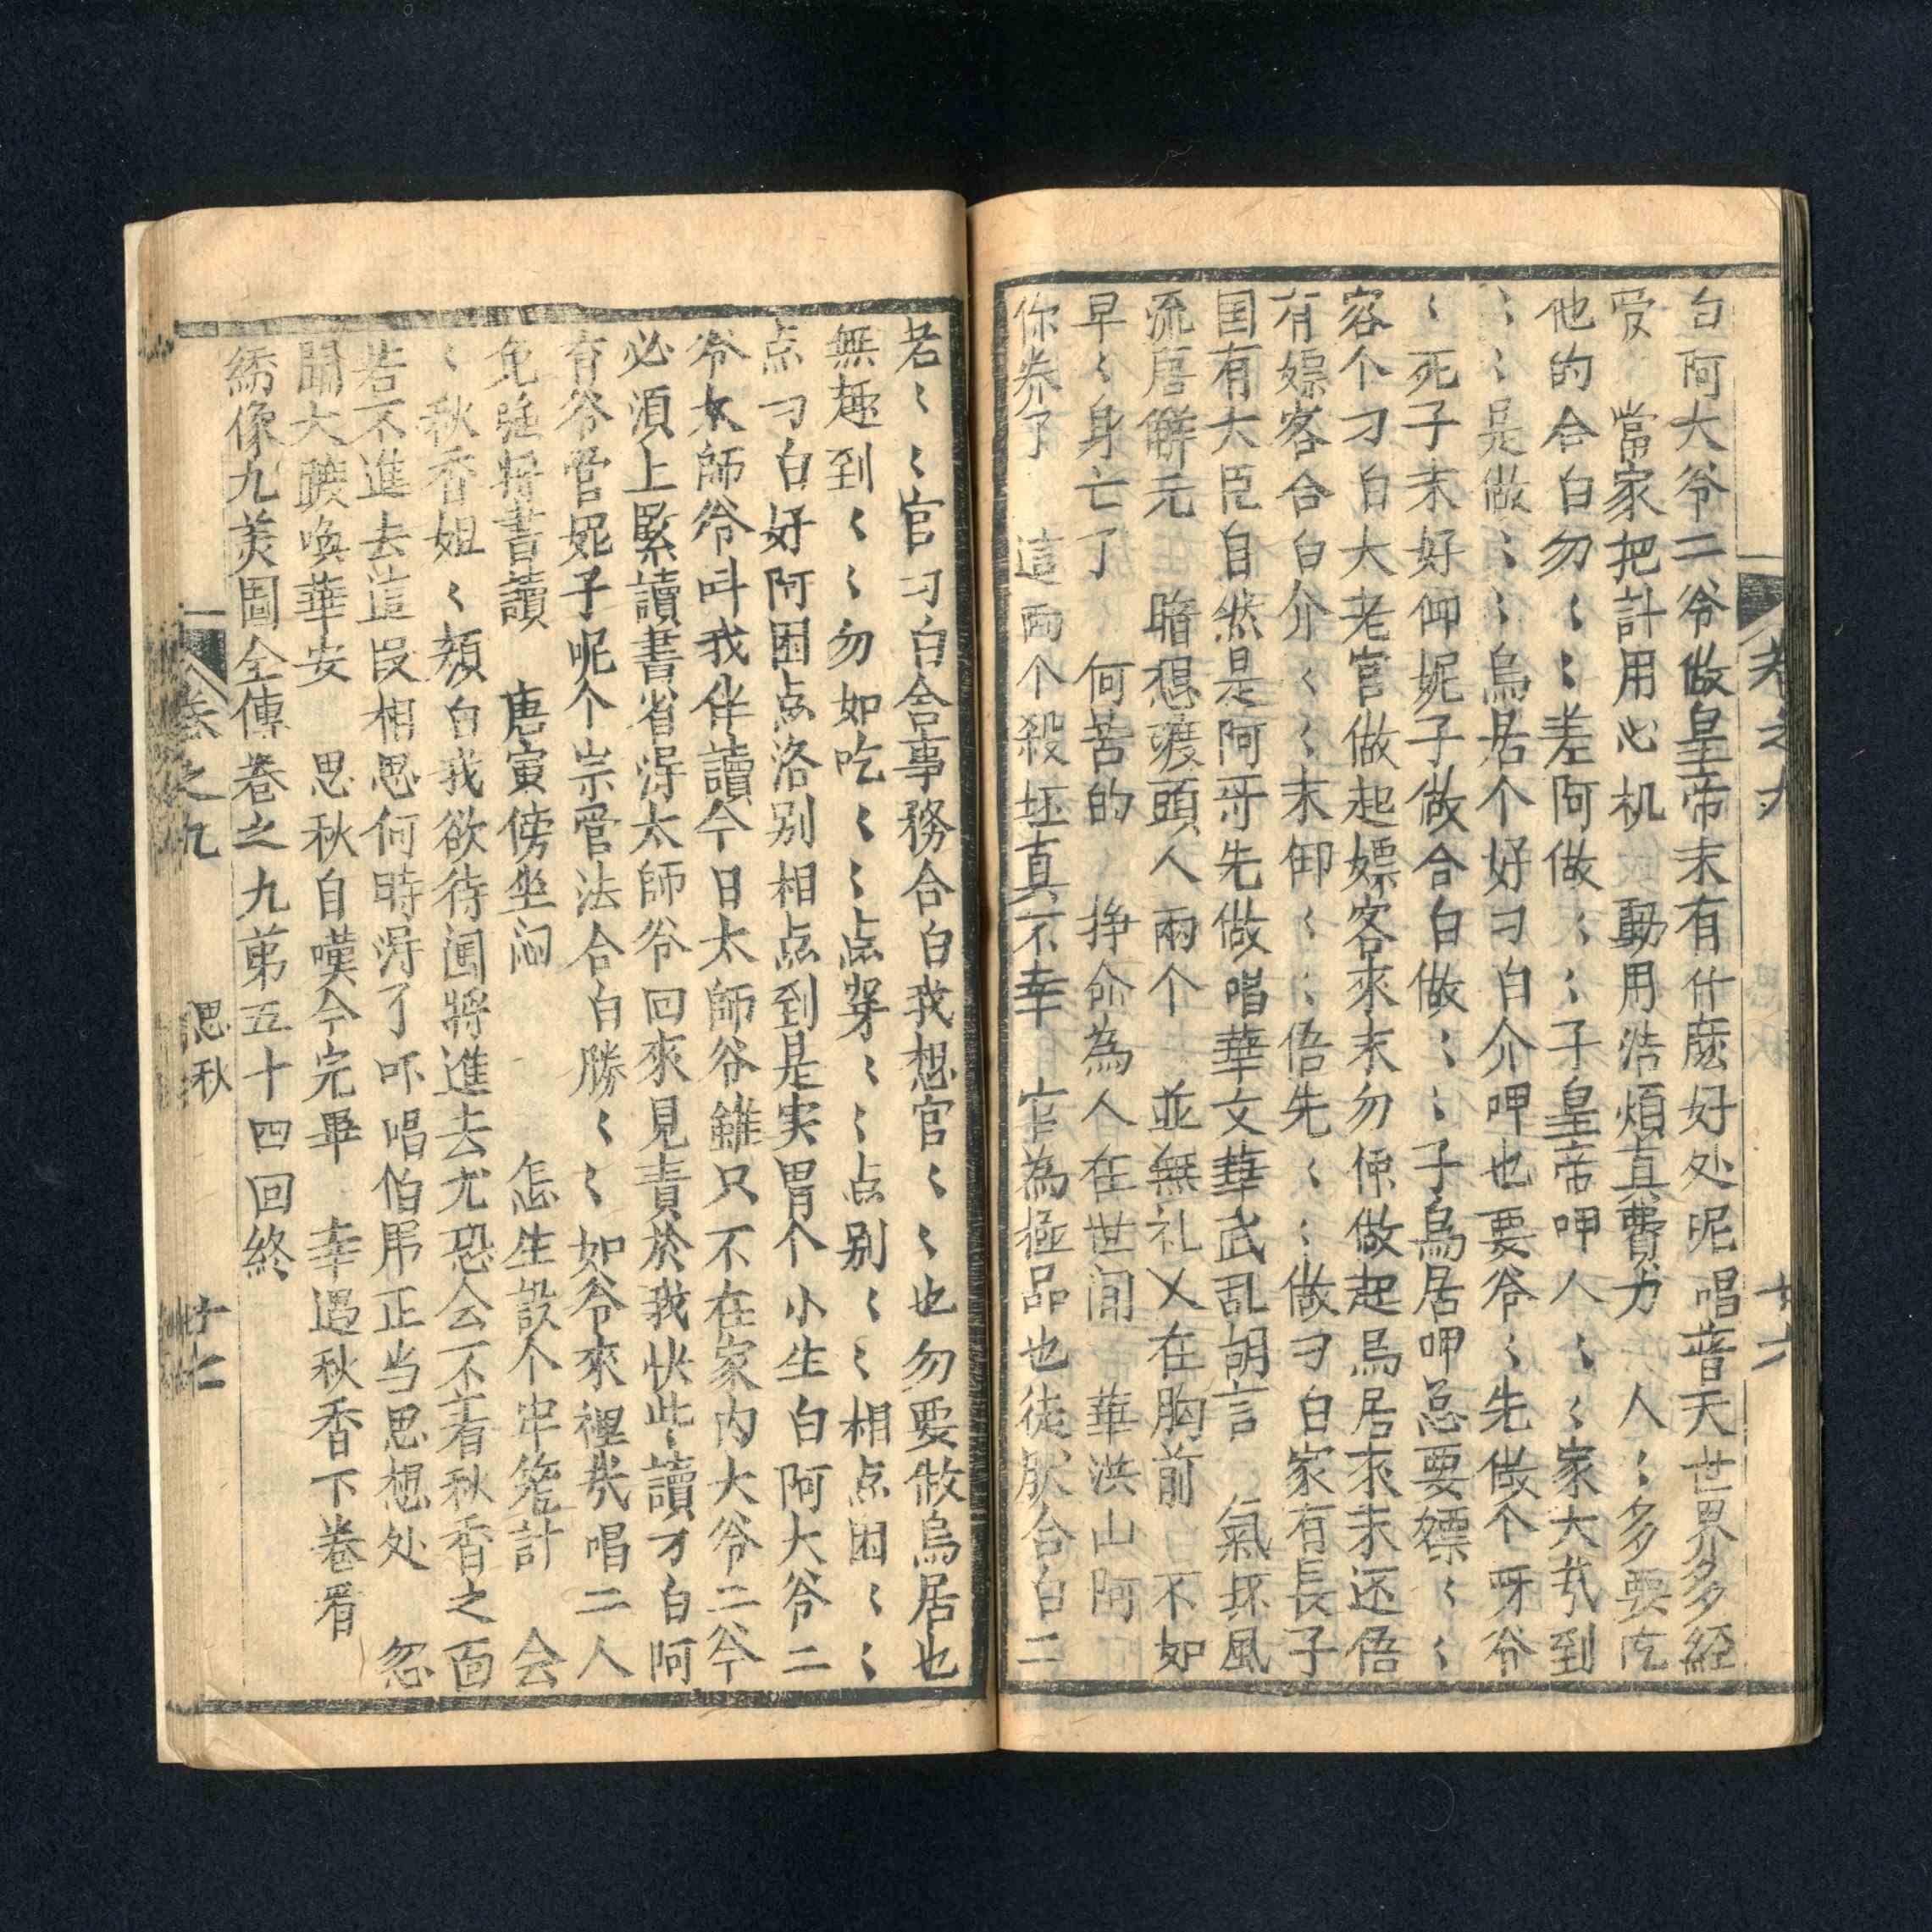 白阿大爷二爷做皇帝末有什麽好处呢唱普天世界多經
受 當家把計用心机 動用浩煩真費力 人〻多要吃
他的合白勿〻〻差阿做〻〻子皇帝呷人〻〻家大㐦到
〻〻是做〻〻烏居个好刁白介呷也要爷〻先做个呀爷
〻死子末好仰妮子做合白做〻〻子烏居呷忌要嫖〻〻
客个刁白大老官做起嫖客來末勿便做起烏居來末还俉
有嫖客合白介〻〻末御〻〻俉先〻〻做刁白家有長子
国有大臣自然是阿哥先做唱華文華武乱胡言 氣坏風
流唐觧元 暗想渡頭人兩个 並無礼乂在胸前 不如
早〻身亡了 何苦的〻掙命為人在世间 華洪山阿
你养了 這兩个殺坯真不幸 官為極品也徒肰合白二
老〻〻官刁白舍事務合白我想官〻〻也勿要做烏居也
無趣到〻〻勿如吃〻〻点芽〻〻点别〻〻相点困〻〻
点刁白好阿困点洛别相点到是実胃个小生白阿大爷二
爷太師爷呌我伴讀今日太師爷雖只不在家内大爷二爷
必須上緊讀書省淂太師爷回來見責於我快些讀才白阿
育爷管妮子呢个崇管法合白勝〻〻如爷來裡㐦唱二人
免强將書讀 唐寅傍坐闷 怎生設个牢篭計 会
〻秋香姐〻頦白我欲待闖將進去尤恐会不着秋香之面
若不進去這段相思何時淂了吓唱伯馬正当思想处 忽
聞大踱喚華安 思秋自嘆今完畢 幸遇秋香下卷看
綉像九美圖全傳卷之九苐五十四回終
卷之九 思秋 廿七